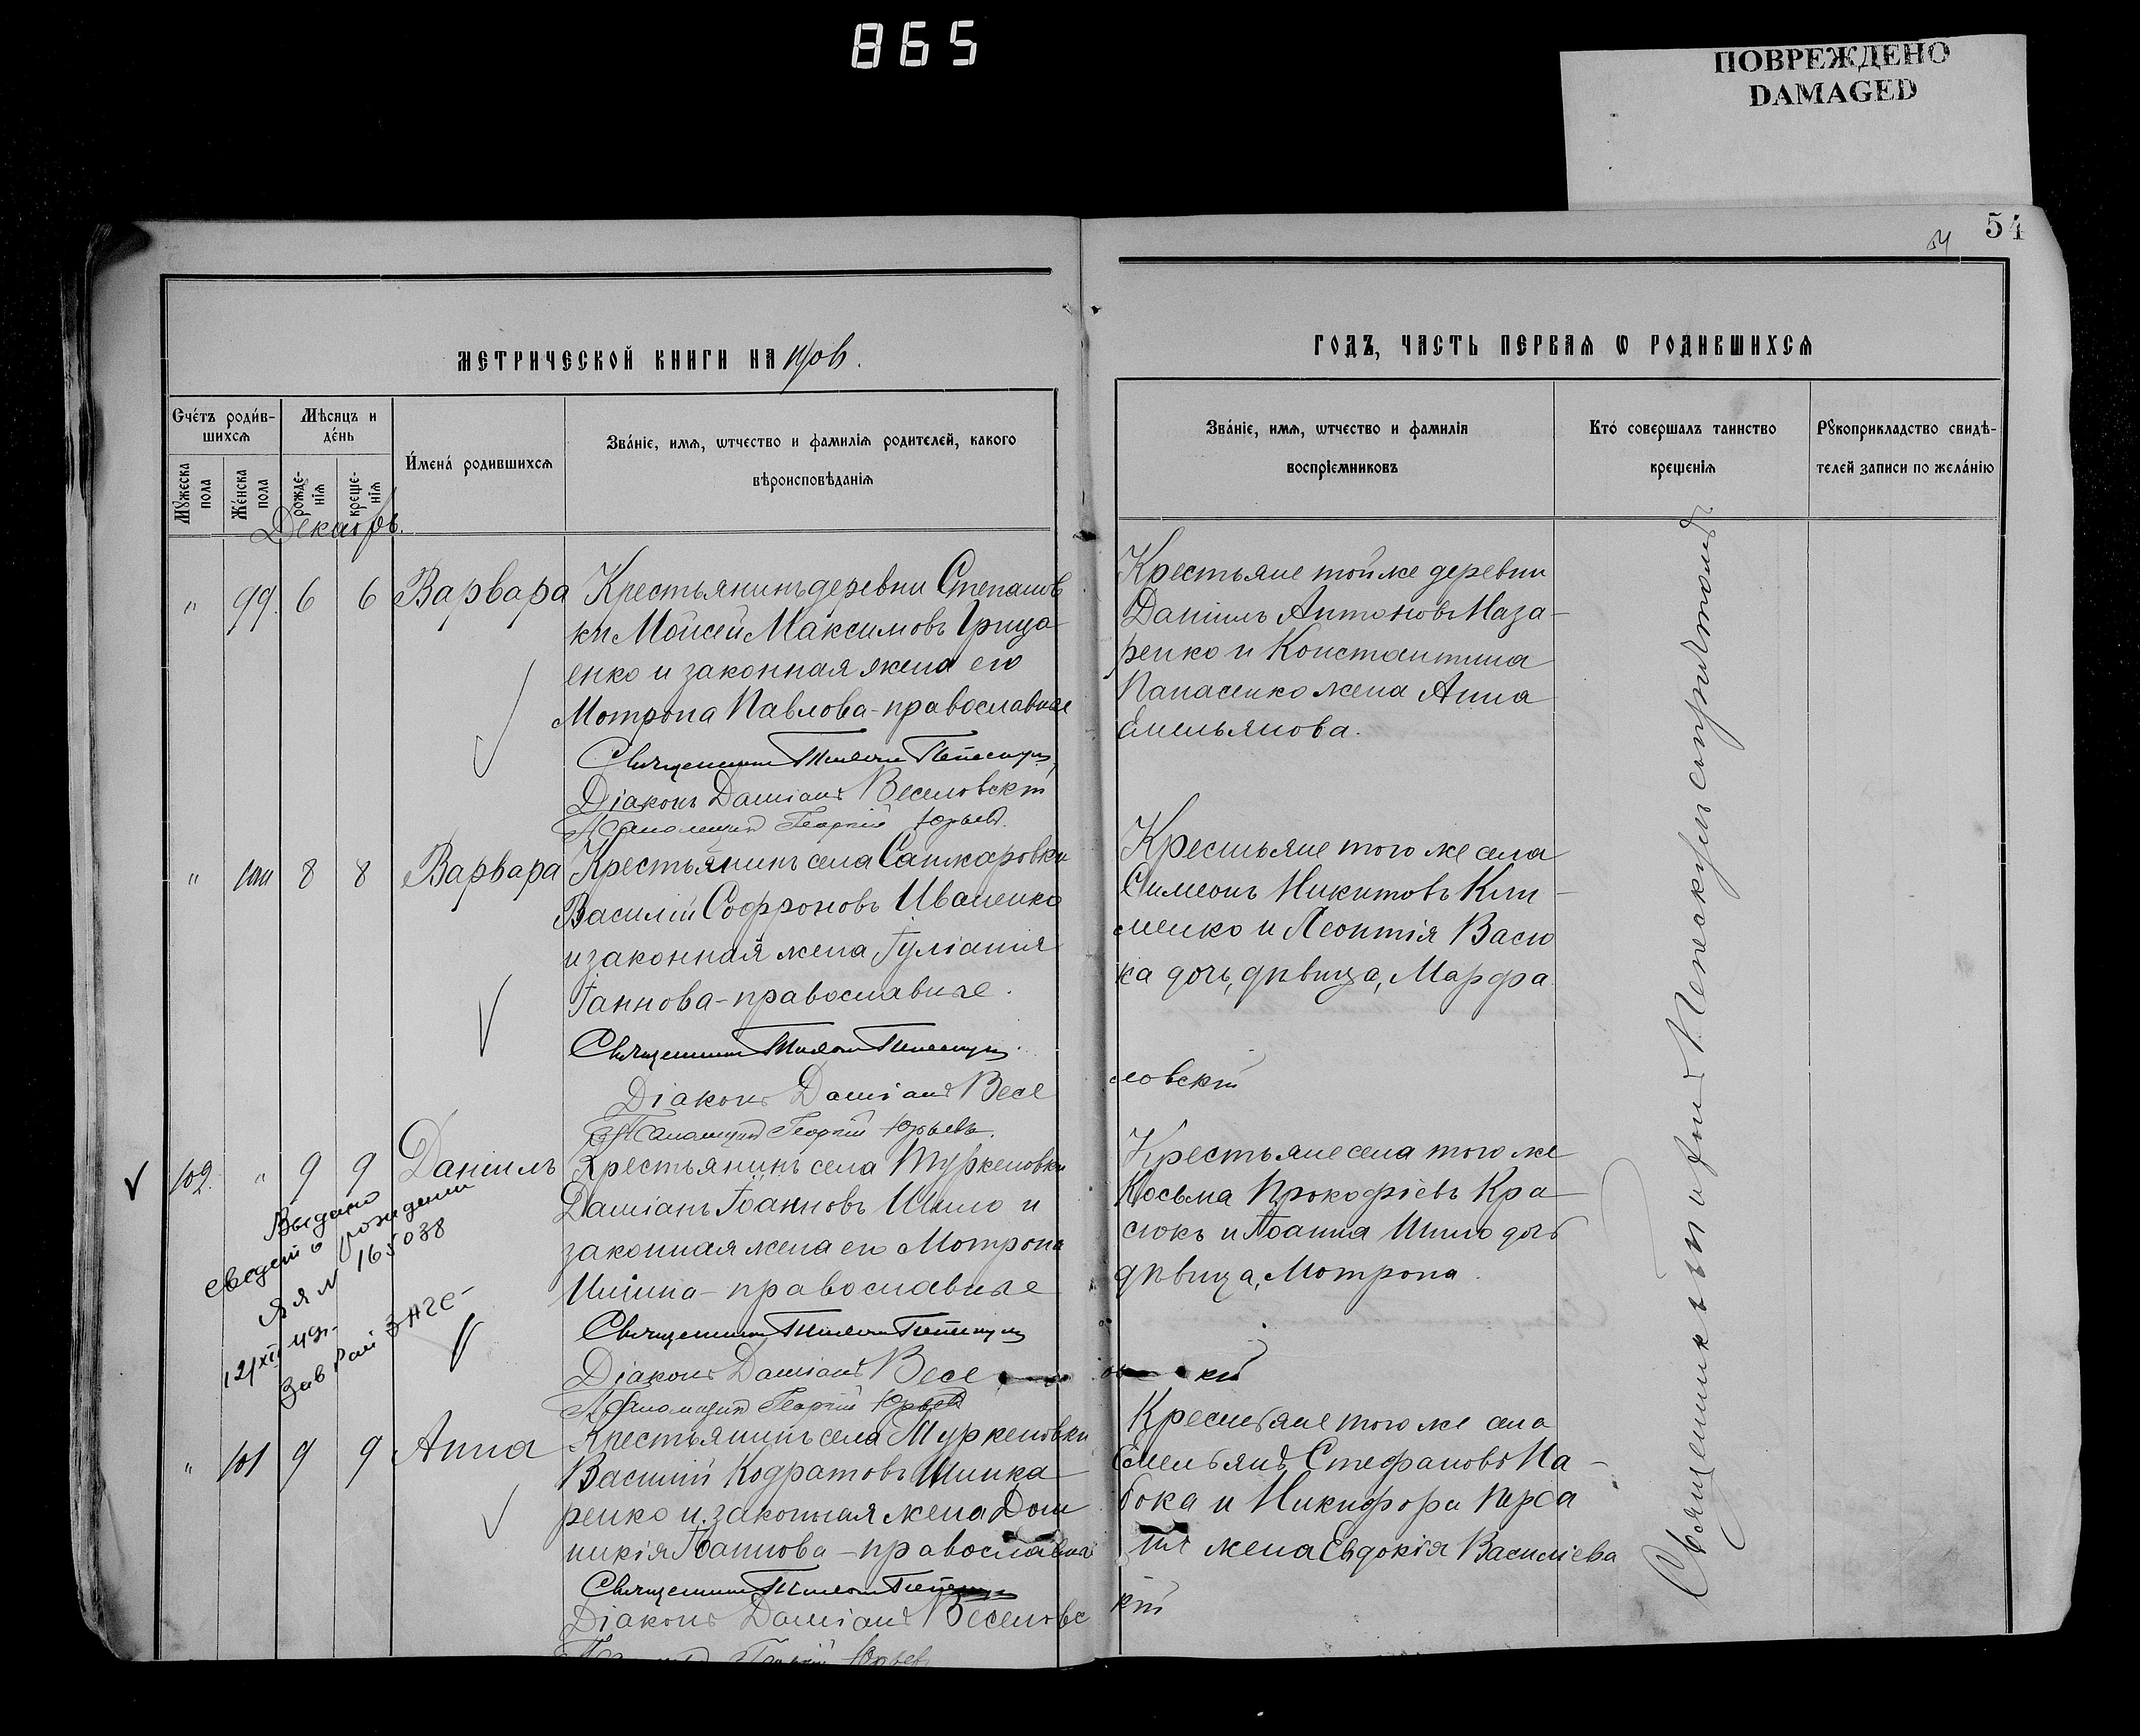 865
ПОВРЕЖДЕНО
DAMAGED
54
54
МЕТРИЧЕСКОЙ КНИГИ НА
ГОДЪ, ЧАСТЬ ПЕРВАЯ Ѡ РОДИВШИХСЯ
Счетъ родив-
шихся
Мѣсяцъ и
день
Мужеска
пола
Женска
пола
рожде-
нія
креще-
нія
Имена родившихся
Званіе, имя, ѡтчество и фамилія родителей, какого
вѣроисповѣданія
Званіе, имя, ѡтчество и фамилія
воспріемниковъ
Кто совершалъ таинство
крещенія
Рукоприкладство свидѣ-
телей записи по желанію
Декабрь.
" 99. 6 6 Варвара
Крестьянинъ деревни Степанов
ки Моисей Максимовъ Грица
енко и законная жена его
Мотрона Павлова - православные
Священникъ
Діаконъ Даміанъ Веселовскій
Псаломщикъ Георгій Юрьевъ.
Крестьяне той же деревни
Даніилъ Антоновъ Наза-
ренко и Константина
Панасенко жена Анна
Емельянова.
" 100 8 8 Варвара
Крестьянинъ села Сашкаровки
Василій Софроновъ Иваненко
и законная жена Іуліанія
Іаннова - православные.
Священникъ
Діаконъ Даміанъ Весе
ловскій
Псаломщикъ Георгій Юрьевъ.
Крестьяне того же села
Симеонъ Никитовъ Кли-
менко и Леонтія Васю
ка дочь, дѣвица, Марфа
102. " 9 9 Даніилъ
Крестьянинъ села Туркеновки
Даміанъ Іоанновъ Шило и
законная жена его Мотрона
православные
Священникъ
Діаконъ Даміанъ Весе
кій
Псаломщикъ Георгій Юрьевъ
Крестьяне села того же
Косьма Прокофіевъ Кра
сюкъ и Іоанна Шило дочь
дѣвица, Мотрона.
Выдано
свидет о рождении
ЯЯ № 165038
12/XII 49г.
Зав Рай ЗАГС
" 101 9 9 Анна
Крестьянинъ села Туркеновки
Василій Кодратовъ Шинка
ренко и законная жена Дом
никія Іоаннова - православные
Священникъ
Діаконъ Даміанъ Веселовс
кій
Георгій Юрьевъ
Крестьяне того же села
Емельянъ Стефановъ На-
бока и Никифора
жена Евдокія Василіева
Священникъ